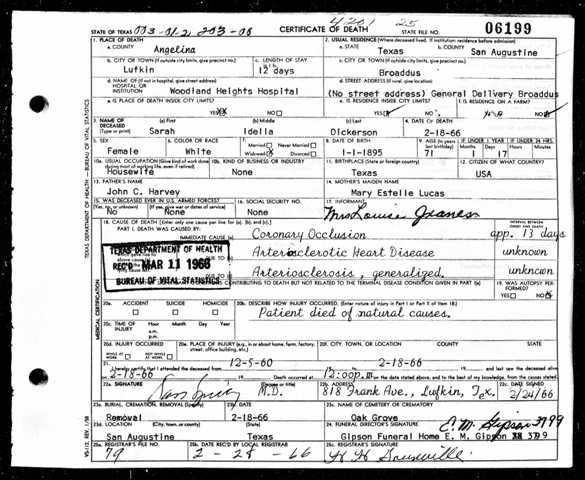 4201 25
STATE OF TEXAS 003-01-2, 203-06 CERTIFICATE OF DEATH STATE FILE NO. 06199
1. PLACE OF DEATH 2. USUAL RESIDENCE (Where deceased lived. If institution: residence before admission)
a. COUNTY Angelina a. STATE Texas b. COUNTY San Augustine
b. CITY OR TOWN (If outside city limits, give precinct no.) c. LENGTH OF STAY c. CITY OR TOWN (If outside city limits, give precinct no.)
Lufkin 12 days Broaddus
d. NAME OF (If not in hospital, give street address) HOSPITAL OR INSTITUTION Woodland Heights Hospital d. STREET ADDRESS (If rural, give location)
(No street address) General Delivery Broaddus
e. IS PLACE OF DEATH INSIDE CITY LIMITS? YES NO e. IS RESIDENCE INSIDE CITY LIMITS? YES NO f. IS RESIDENCE ON A FARM? YES NO
3. NAME OF DECEASED (Type or print) (a) First (b) Middle (c) Last 4. DATE OF DEATH
Sarah Idella Dickerson 2-18-66
5. SEX 6. COLOR OR RACE 7. Married Never Married Widowed Divorced 8. DATE OF BIRTH 9. AGE (In years last birthday) IF UNDER 1 YEAR IF UNDER 24 HRS.
Female White 1-1-1895 71 1 17
10a. USUAL OCCUPATION (Give kind of work done during most of working life, even if retired) 10b. KIND OF BUSINESS OR INDUSTRY 11. BIRTHPLACE (State or foreign country) 12. CITIZEN OF WHAT COUNTRY?
Housewife None Texas USA
13. FATHER'S NAME 14. MOTHER'S MAIDEN NAME
John C. Harvey Mary Estelle Lucas
15. WAS DECEASED EVER IN U.S. ARMED FORCES? 16. SOCIAL SECURITY NO. 17. INFORMANT
(Yes, no, or unknown) (If yes, give war or dates of service)
No None None Mrs Louise
18. CAUSE OF DEATH [Enter only one cause per line for (a), (b), and (c).] INTERVAL BETWEEN ONSET AND DEATH
PART I. DEATH WAS CAUSED BY:
IMMEDIATE CAUSE (a) Coronary Occlusion app. 13 days
Arteriosclerotic Heart Disease unknown
Arteriosclerosis, generalized. unknown
TEXAS DEPARTMENT OF HEALTH
REC'D MAR 11 1966
BUREAU OF VITAL STATISTICS
CONTRIBUTING TO DEATH BUT NOT RELATED TO THE TERMINAL DISEASE CONDITION GIVEN IN PART I(a) 19. WAS AUTOPSY PERFORMED? YES NO
20a. ACCIDENT SUICIDE HOMICIDE 20b. DESCRIBE HOW INJURY OCCURRED. (Enter nature of injury in Part I or Part II of item 18.)
Patient died of natural causes.
20c. TIME OF INJURY Hour Month Day Year a.m. p.m.
20d. INJURY OCCURRED WHILE AT WORK NOT WHILE AT WORK 20e. PLACE OF INJURY (e.g., in or about home, farm, factory, street, office building, etc.) 20f. CITY, TOWN, OR LOCATION COUNTY STATE
21. I hereby certify that I attended the deceased from 12-5-60 2-18-66 and last saw the deceased alive on
2-18-66 Death occurred at 12:00p.m on the date stated above, and to the best of my knowledge, from the causes stated.
22a. SIGNATURE (Degree or title) M.D. 22b. ADDRESS 818 Frank Ave., Lufkin, Tex. 22c. DATE SIGNED 2/24/66
23a. BURIAL, CREMATION, REMOVAL (Specify) 23b. DATE 23c. NAME OF CEMETERY OR CREMATORY
Removal 2-18-66 Oak Grove
23d. LOCATION (City, town, or county) (State) 24. FUNERAL DIRECTOR'S SIGNATURE E.M. Gipson 3799
San Augustine Texas Gipson Funeral Home E. M. Gipson 3799
25a. REGISTRAR'S FILE NO. 25b. DATE REC'D BY LOCAL REGISTRAR 25c. REGISTRAR'S SIGNATURE
79 2-28-66
TEXAS DEPARTMENT OF HEALTH—BUREAU OF VITAL STATISTICS
MEDICAL CERTIFICATION
VS-112, REV. 1/58